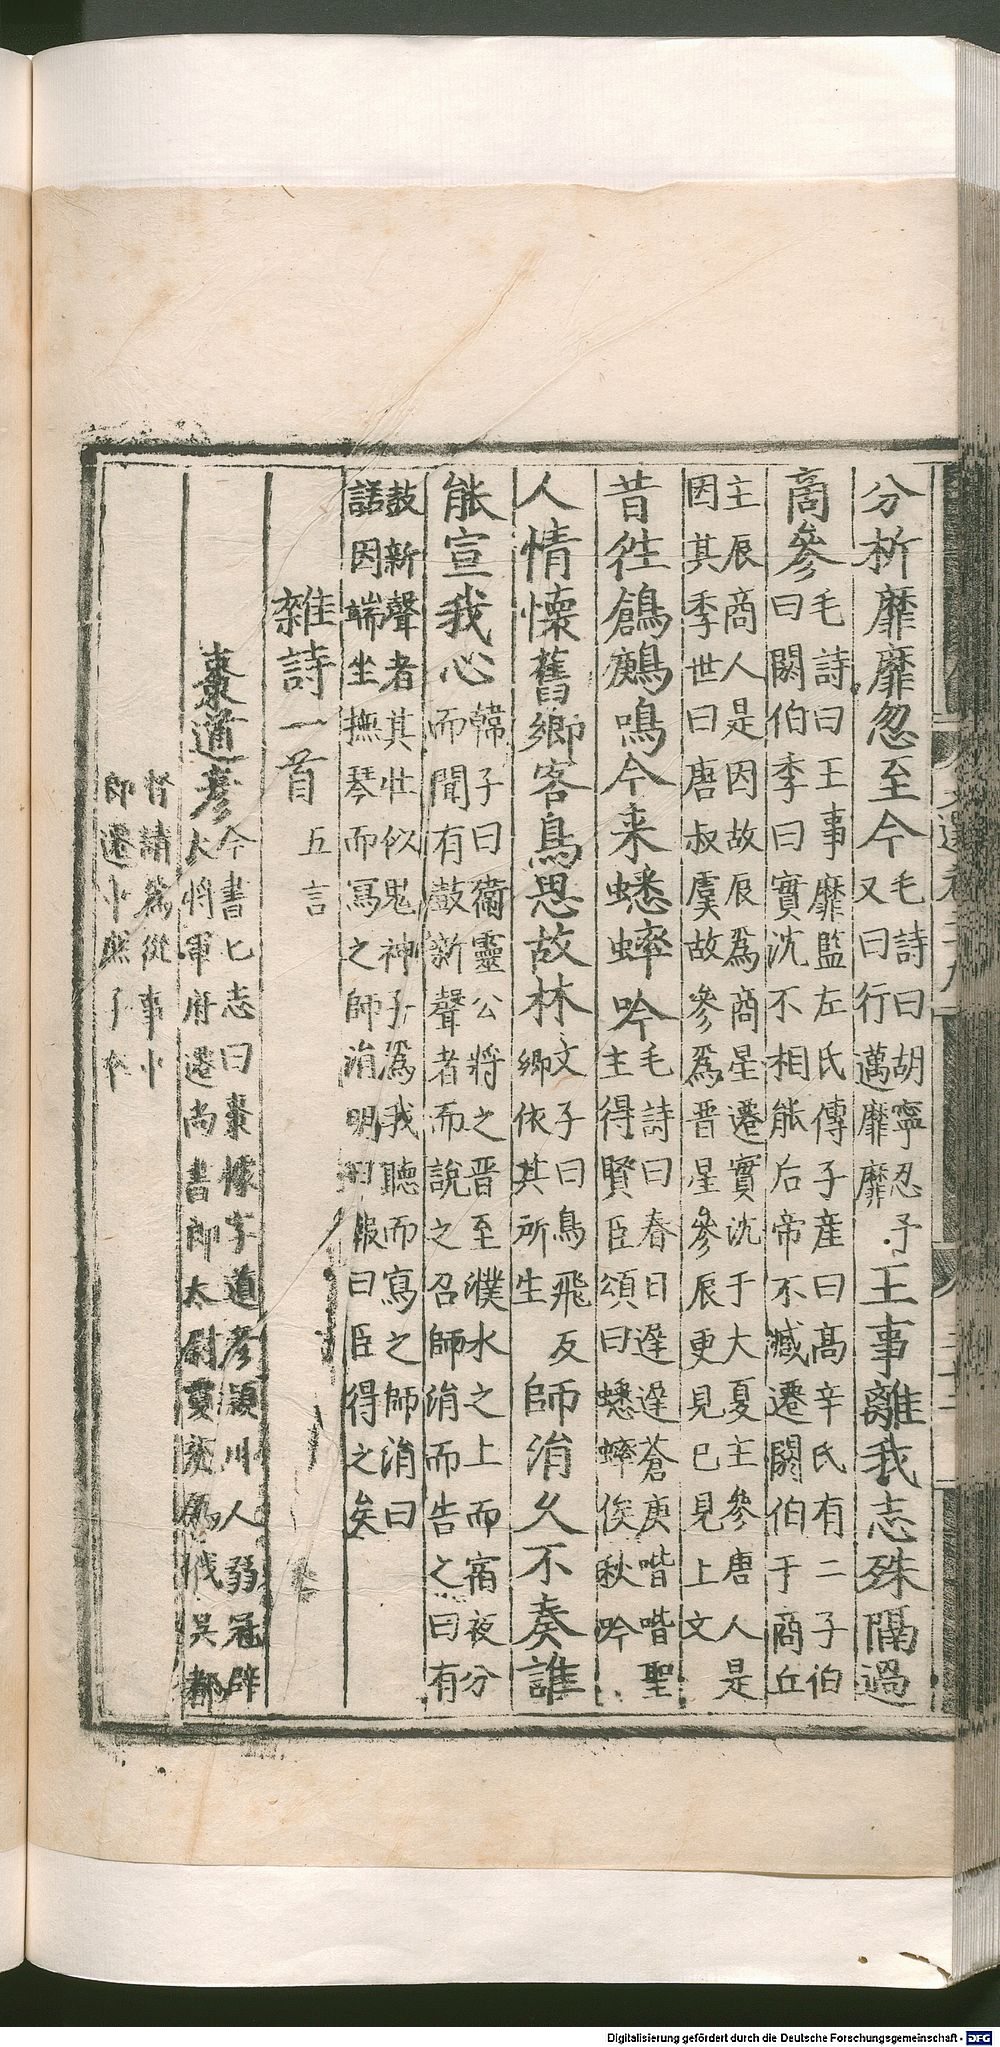 分析靡靡忽至今毛詩曰胡寧忍予又曰行邁靡靡王事離我志殊隔過
商參毛詩曰王事靡監左氏傳子産曰高辛氏有二子伯曰閼伯季曰實沈不相能后帝不臧遷閼伯于商丘
主辰商人是因故辰爲商星遷實沈于大夏主參唐人是因其季世曰唐叔虞故參爲晋星參辰更見已見上文
昔徃鶬鶊鳴今来蟋蟀吟毛詩曰春日遅遅蒼庚喈喈聖主得賢臣頌曰蟋蟀俟秋吟
人情懷舊鄉客鳥思故林文子曰鳥飛反鄉依其所生師涓久不奏誰
能宣我心韓子曰衞靈公將之晋至濮水之上而宿夜分而聞有鼓新聲者而說之召師涓而告之曰有
鼓新聲者其壯似鬼神子爲我聽而寫之師涓曰諾因端坐撫琴而寫之師涓明日報曰臣得之矣
雜詩一首 五言
棗道彥今書七志曰棗據字道彥潁川人弱冠辟大將軍府遷尚書郎太尉賈充爲伐吳都
督請爲從事中郎遷中庶子卒
Digitalisierung gefördert durch die Deutsche Forschungsgemeinschaft - DFG